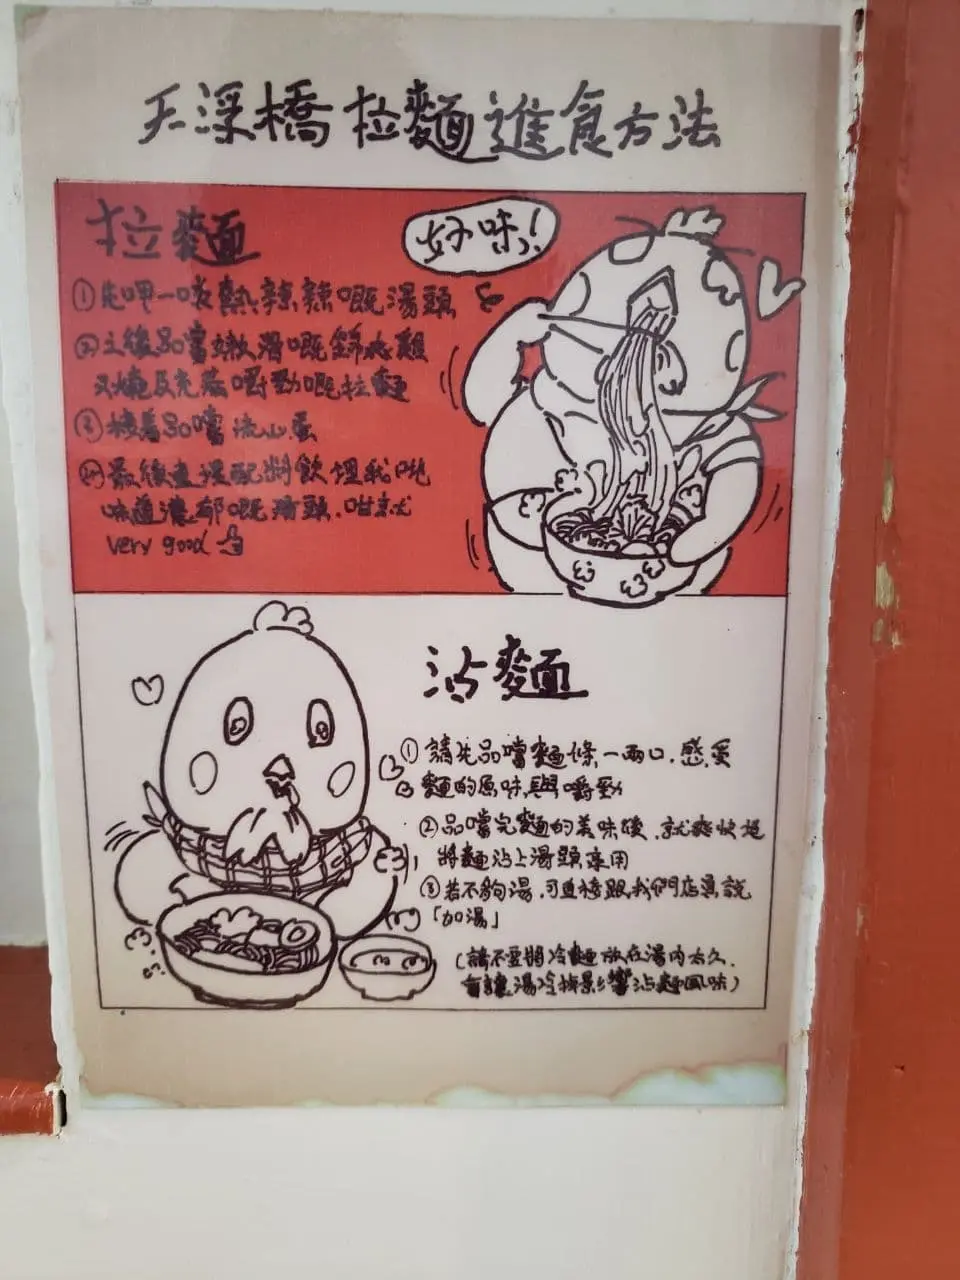 天滓橋拉麵進食方法
拉麵
好味!
①先呷一啖熱辣辣嘅湯頭
②之後品嚐嫩滑嘅錦爽雞
叉燒及充滿嚼勁嘅拉麵
③接著品嚐流心蛋
④最後直接配將飲埋我哋
味道濃郁嘅湯頭.咁就
very good
沾麵
①請先品嚐麵條一兩口.感受
麵的原味與嚼勁
②品嚐完麵的美味後.就爽快地
將麵沾上湯頭享用
③若不夠湯.可直接跟我們店員說
「加湯」
(請不要將冷麵放在湯內太久.
會讓湯冷掉影響沾麵風味)